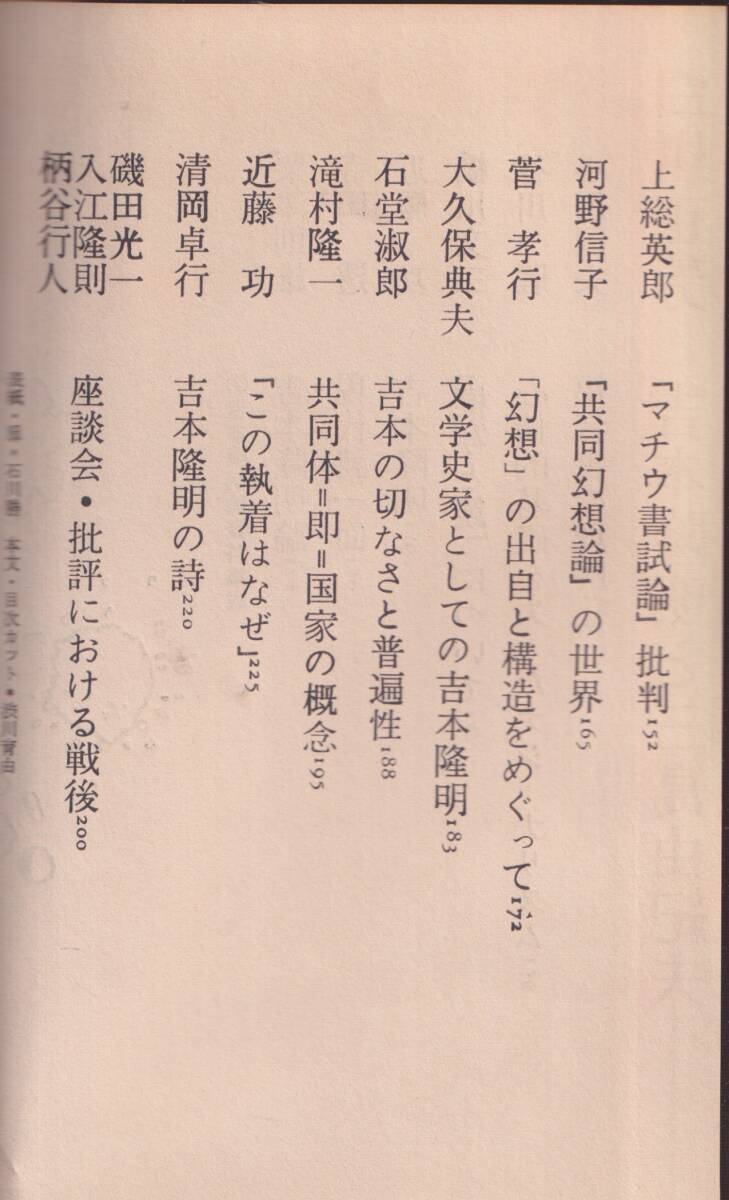 上総英郎 『マチウ書試論』批判 152
河野信子 『共同幻想論』の世界 165
菅 孝行 「幻想」の出自と構造をめぐって 172
大久保典夫 文学史家としての吉本隆明 183
石堂淑郎 吉本の切なさと普遍性 188
滝村隆一 共同体=即=国家の概念 195
近藤 功 「この執着はなぜ」 225
清岡卓行 吉本隆明の詩 220
磯田光一
入江隆則 座談会・批評における戦後 200
柄谷行人
石川勝 本文・目次カット・渋川育由